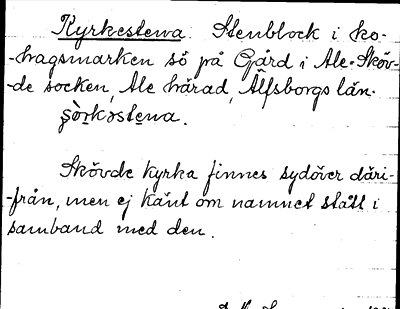 Kyrkestena. Stenblock i ko-
-hagsmarken sö på Gård i Ale-Sköv-
-de socken, Ale härad, Älfsborgs län.
Skövde kyrka finnes sydöver däri-
-från, men ej känt om namnet stått i
samband med den.